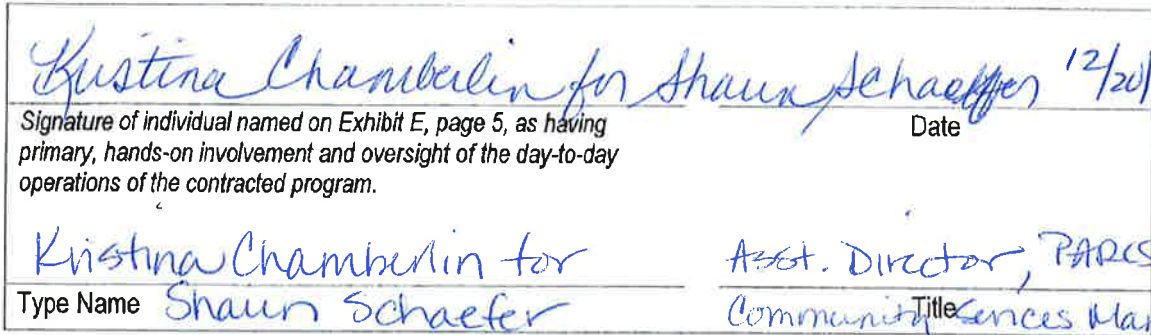 Kristina Chamberlin for Shaun Schaeffer 12/20/
Signature of individual named on Exhibit E, page 5, as having
primary, hands-on involvement and oversight of the day-to-day
operations of the contracted program.
Date
Kristina Chamberlin for
Asst. Director, PARCS
Type Name Shaun Schaefer
Community Services Man
Title